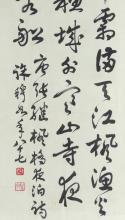 霜滿天江楓漁火
蘇城外寒山寺夜
客船 唐張繼楓橋夜泊詩
年八七